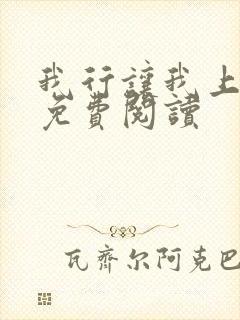 我行讓我上
免費閱讀
瓦齊尔阿克巴